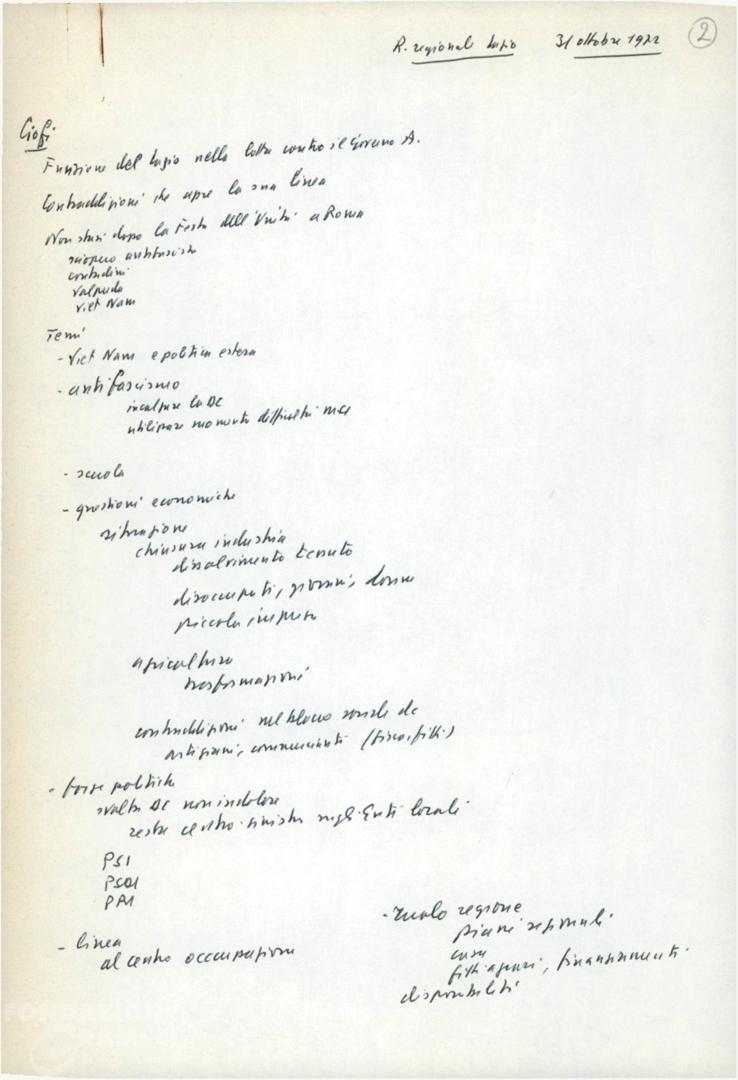 R. regionale Lazio 31 ottobre 1972 2
Ciofi
Funzione del Lazio nella lotta contro il Governo A.
Contraddizioni che apre la sua linea
Non stasi dopo la Festa dell'Unità a Roma
sciopero antifascista
contadini
Valpreda
Viet Nam
Temi
- Viet Nam e politica estera
- antifascismo
incalzare la DC
utilizzare momento difficoltà msi
- scuola
- questioni economiche
situazione
chiusura industria
dissolvimento tessuto
disoccupati, giovani, donne
piccola impresa
agricoltura
trasformazioni
contraddizioni nel blocco sociale dc
artigiani, commercianti (fisco, fitti)
- forze politiche
svolta DC non indolore
resta centro-sinistra negli Enti locali
PSI
PSDI
PRI
- linea
al centro occupazione
- ruolo regione
piani regionali
casa
fitti agrari, finanziamenti
disponibilità
FONDAZIONE
GRAMSCI